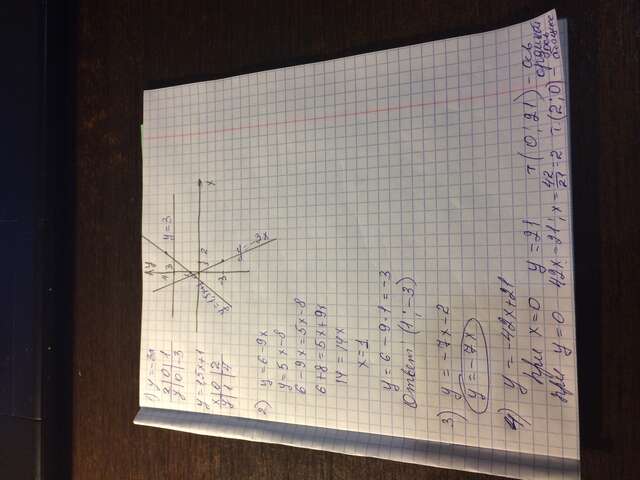 1) y = -3x
x | 0 | 1
y | 0 | -3
y = 1,5x+1
x | 0 | 2
y | 1 | 4
y
3
y = 3
x
1 2
-3
y = -3x
2) y = 6-9x
y = 5x-8
6-9x = 5x-8
6+8 = 5x+9x
14 = 14x
x = 1
y = 6-9·1 = -3
Ответ: (1; -3)
3) y = -7x-2
y = -7x
4) y = -42x+21
при x=0 y=21 т(0; 21) - ось ординат
при y=0 42x=21; x = 42/21 = 2 т(2; 0) -